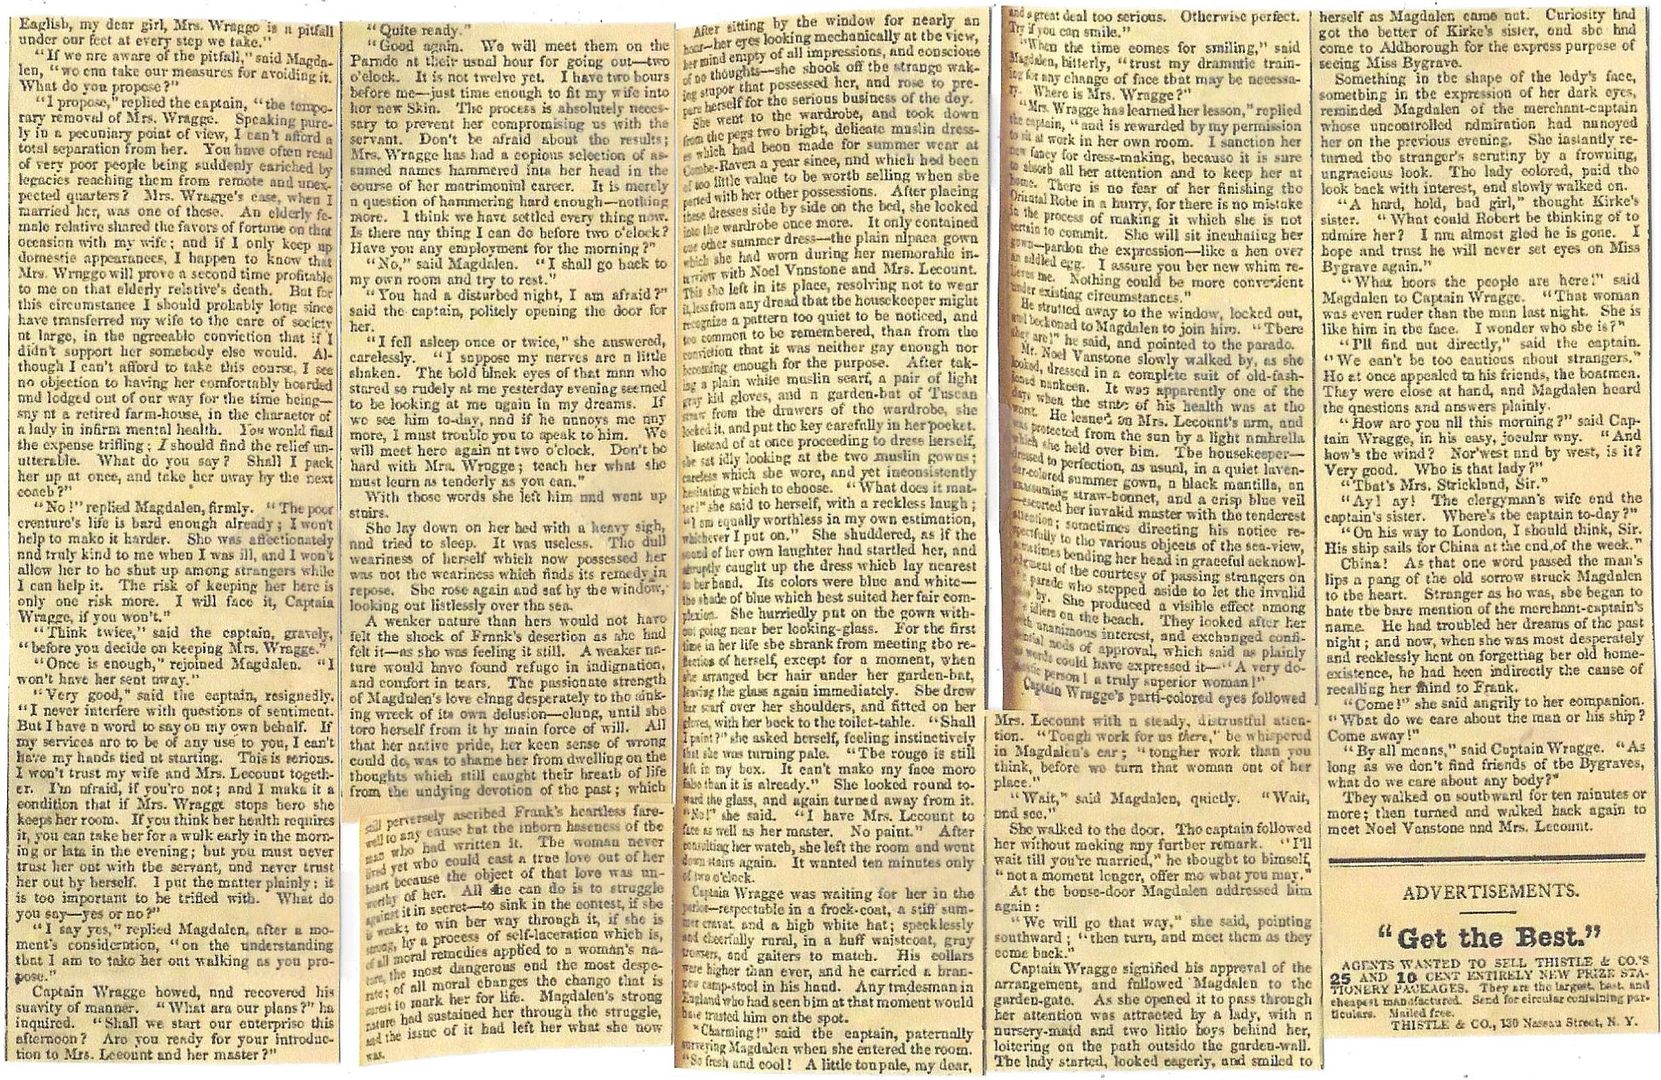 English, my dear girl, Mrs. Wragge is a pitfall
under our feet at every step we take."
"If we are aware of the pitfall," said Magda-
len, "we can take our measures for avoiding it.
What do you propose?"
"I propose," replied the captain, "the tempo-
rary removal of Mrs. Wragge. Speaking pure-
ly in a pecuniary point of view, I can't afford a
total separation from her. You have often read
of very poor people being suddenly enriched by
legacies reaching them from remote and unex-
pected quarters? Mrs. Wragge's case, when I
married her, was one of these. An elderly fe-
male relative shared the favors of fortune on that
occasion with my wife; and if I only keep up
domestic appearances, I happen to know that
Mrs. Wragge will prove a second time profitable
to me on that elderly relative's death. But for
this circumstance I should probably long since
have transferred my wife to the care of society
at large, in the agreeable conviction that if I
didn't support her somebody else would. Al-
though I can't afford to take this course, I see
no objection to having her comfortably boarded
and lodged out of our way for the time being—
say at a retired farm-house, in the character of
a lady in infirm mental health. You would find
the expense trifling; I should find the relief un-
utterable. What do you say? Shall I pack
her up at once, and take her away by the next
coach?"
"No!" replied Magdalen, firmly. "The poor
creature's life is hard enough already; I won't
help to make it harder. She was affectionately
and truly kind to me when I was ill, and I won't
allow her to be shut up among strangers while
I can help it. The risk of keeping her here is
only one risk more. I will face it, Captain
Wragge, if you won't."
"Think twice," said the captain, gravely,
"before you decide on keeping Mrs. Wragge."
"Once is enough," rejoined Magdalen. "I
won't have her sent away."
"Very good," said the captain, resignedly.
"I never interfere with questions of sentiment.
But I have a word to say on my own behalf. If
my services are to be of any use to you, I can't
have my hands tied at starting. This is serious.
I won't trust my wife and Mrs. Lecount togeth-
er. I'm afraid, if you're not; and I make it a
condition that if Mrs. Wragge stops here she
keeps her room. If you think her health requires
it, you can take her for a walk early in the morn-
ing or late in the evening; but you must never
trust her out with the servant, and never trust
her out by herself. I put the matter plainly: it
is too important to be trifled with. What do
you say—yes or no?"
"I say yes," replied Magdalen, after a mo-
ment's consideration, "on the understanding
that I am to take her out walking as you pro-
pose."
Captain Wragge bowed, and recovered his
suavity of manner. "What are our plans?" he
inquired. "Shall we start our enterprise this
afternoon? Are you ready for your introduc-
tion to Mrs. Lecount and her master?"
"Quite ready."
"Good again. We will meet them on the
Parade at their usual hour for going out—two
o'clock. It is not twelve yet. I have two hours
before me—just time enough to fit my wife into
her new Skin. The process is absolutely neces-
sary to prevent her compromising us with the
servant. Don't be afraid about the results;
Mrs. Wragge has had a copious selection of as-
sumed names hammered into her head in the
course of her matrimonial career. It is merely
a question of hammering hard enough—nothing
more. I think we have settled every thing now.
Is there any thing I can do before two o'clock?
Have you any employment for the morning?"
"No," said Magdalen. "I shall go back to
my own room and try to rest."
"You had a disturbed night, I am afraid?"
said the captain, politely opening the door for
her.
"I fell asleep once or twice," she answered,
carelessly. "I suppose my nerves are a little
shaken. The bold black eyes of that man who
stared so rudely at me yesterday evening seemed
to be looking at me again in my dreams. If
we see him to-day, and if he annoys me any
more, I must trouble you to speak to him. We
will meet here again at two o'clock. Don't be
hard with Mrs. Wragge; teach her what she
must learn as tenderly as you can."
With those words she left him and went up
stairs.
She lay down on her bed with a heavy sigh,
and tried to sleep. It was useless. The dull
weariness of herself which now possessed her
was not the weariness which finds its remedy in
repose. She rose again and sat by the window,
looking out listlessly over the sea.
A weaker nature than hers would not have
felt the shock of Frank's desertion as she had
felt it—as she was feeling it still. A weaker na-
ture would have found refuge in indignation,
and comfort in tears. The passionate strength
of Magdalen's love clung desperately to the sink-
ing wreck of its own delusion—clung, until she
tore herself from it by main force of will. All
that her native pride, her keen sense of wrong
could do, was to shame her from dwelling on the
thoughts which still caught their breath of life
from the undying devotion of the past; which
still perversely ascribed Frank's heartless fare-
well to any cause but the inborn baseness of the
man who had written it. The woman never
lived yet who could cast a true love out of her
heart because the object of that love was un-
worthy of her. All she can do is to struggle
against it in secret—to sink in the contest, if she
is weak; to win her way through it, if she is
strong, by a process of self-laceration which is,
of all moral remedies applied to a woman's na-
ture, the most dangerous and the most despe-
rate; of all moral changes the change that is
surest to mark her for life. Magdalen's strong
nature had sustained her through the struggle,
and the issue of it had left her what she now
was.
After sitting by the window for nearly an
hour—her eyes looking mechanically at the view,
her mind empty of all impressions, and conscious
of no thoughts—she shook off the strange wak-
ing stupor that possessed her, and rose to pre-
pare herself for the serious business of the day.
She went to the wardrobe, and took down
from the pegs two bright, delicate muslin dress-
es which had been made for summer wear at
Combe-Raven a year since, and which had been
of too little value to be worth selling when she
parted with her other possessions. After placing
these dresses side by side on the bed, she looked
into the wardrobe once more. It only contained
one other summer dress—the plain alpaca gown
which she had worn during her memorable in-
terview with Noel Vanstone and Mrs. Lecount.
This she left in its place, resolving not to wear
it, less from any dread that the housekeeper might
recognize a pattern too quiet to be noticed, and
too common to be remembered, than from the
conviction that it was neither gay enough nor
becoming enough for the purpose. After tak-
ing a plain white muslin scarf, a pair of light
gray kid gloves, and a garden-hat of Tuscan
straw from the drawers of the wardrobe, she
locked it, and put the key carefully in her pocket.
Instead of at once proceeding to dress herself,
she sat idly looking at the two muslin gowns;
careless which she wore, and yet inconsistently
hesitating which to choose. "What does it mat-
ter!" she said to herself, with a reckless laugh;
"I am equally worthless in my own estimation,
whichever I put on." She shuddered, as if the
sound of her own laughter had startled her, and
abruptly caught up the dress which lay nearest
to her hand. Its colors were blue and white—
the shade of blue which best suited her fair com-
plexion. She hurriedly put on the gown with-
out going near her looking-glass. For the first
time in her life she shrank from meeting the re-
flection of herself, except for a moment, when
she arranged her hair under her garden-hat,
leaving the glass again immediately. She drew
her scarf over her shoulders, and fitted on her
gloves, with her back to the toilet-table. "Shall
I paint?" she asked herself, feeling instinctively
that she was turning pale. "The rouge is still
left in my box. It can't make my face more
false than it is already." She looked round to-
ward the glass, and again turned away from it.
"No!" she said. "I have Mrs. Lecount to
face as well as her master. No paint." After
consulting her watch, she left the room and went
down stairs again. It wanted ten minutes only
of two o'clock.
Captain Wragge was waiting for her in the
parlor—respectable in a frock-coat, a stiff sum-
mer cravat, and a high white hat; specklessly
and cheerfully rural, in a buff waistcoat, gray
trowsers, and gaiters to match. His collars
were higher than ever, and he carried a bran-
new camp-stool in his hand. Any tradesman in
England who had seen him at that moment would
have trusted him on the spot.
"Charming!" said the captain, paternally
surveying Magdalen when she entered the room.
"So fresh and cool! A little too pale, my dear,
and a great deal too serious. Otherwise perfect.
Try if you can smile."
"When the time comes for smiling," said
Magdalen, bitterly, "trust my dramatic train-
ing for any change of face that may be necessa-
ry. Where is Mrs. Wragge?"
"Mrs. Wragge has learned her lesson," replied
the captain, "and is rewarded by my permission
to sit at work in her own room. I sanction her
new fancy for dress-making, because it is sure
to absorb all her attention and to keep her at
home. There is no fear of her finishing the
Oriental Robe in a hurry, for there is no mistake
in the process of making it which she is not
certain to commit. She will sit incubating her
gown—pardon the expression—like a hen over
an addled egg. I assure you her new whim re-
lieves me. Nothing could be more convenient
under existing circumstances."
He strutted away to the window, looked out,
and beckoned to Magdalen to join him. "There
they are!" he said, and pointed to the parade.
Mr. Noel Vanstone slowly walked by, as she
looked, dressed in a complete suit of old-fash-
ioned nankeen. It was apparently one of the
days when the state of his health was at the
worst. He leaned on Mrs. Lecount's arm, and
was protected from the sun by a light umbrella
which she held over him. The housekeeper—
dressed to perfection, as usual, in a quiet laven-
der-colored summer gown, a black mantilla, an
unassuming straw-bonnet, and a crisp blue veil
—escorted her invalid master with the tenderest
attention; sometimes directing his notice re-
spectfully to the various objects of the sea-view,
sometimes bending her head in graceful acknowl-
edgment of the courtesy of passing strangers on
the parade who stepped aside to let the invalid
pass by. She produced a visible effect among
the idlers on the beach. They looked after her
with unanimous interest, and exchanged confi-
dential nods of approval, which said as plainly
as words could have expressed it—"A very do-
mestic person! a truly superior woman!"
Captain Wragge's parti-colored eyes followed
Mrs. Lecount with a steady, distrustful atten-
tion. "Tough work for us there," he whispered
in Magdalen's ear; "tougher work than you
think, before we turn that woman out of her
place."
"Wait," said Magdalen, quietly. "Wait,
and see."
She walked to the door. The captain followed
her without making any further remark. "I'll
wait till you're married," he thought to himself,
"not a moment longer, offer me what you may."
At the house-door Magdalen addressed him
again:
"We will go that way," she said, pointing
southward; "then turn, and meet them as they
come back."
Captain Wragge signified his approval of the
arrangement, and followed Magdalen to the
garden-gate. As she opened it to pass through
her attention was attracted by a lady, with a
nursery-maid and two little boys behind her,
loitering on the path outside the garden-wall.
The lady started, looked eagerly, and smiled to
herself as Magdalen came out. Curiosity had
got the better of Kirke's sister, and she had
come to Aldborough for the express purpose of
seeing Miss Bygrave.
Something in the shape of the lady's face,
something in the expression of her dark eyes,
reminded Magdalen of the merchant-captain
whose uncontrolled admiration had annoyed
her on the previous evening. She instantly re-
turned the stranger's scrutiny by a frowning,
ungracious look. The lady colored, paid the
look back with interest, and slowly walked on.
"A hard, bold, bad girl," thought Kirke's
sister. "What could Robert be thinking of to
admire her? I am almost glad he is gone. I
hope and trust he will never set eyes on Miss
Bygrave again."
"What boors the people are here!" said
Magdalen to Captain Wragge. "That woman
was even ruder than the man last night. She is
like him in the face. I wonder who she is?"
"I'll find out directly," said the captain.
"We can't be too cautious about strangers."
He at once appealed to his friends, the boatmen.
They were close at hand, and Magdalen heard
the questions and answers plainly.
"How are you all this morning?" said Cap-
tain Wragge, in his easy, jocular way. "And
how's the wind? Nor'west and by west, is it?
Very good. Who is that lady?"
"That's Mrs. Strickland, Sir."
"Ay! ay! The clergyman's wife and the
captain's sister. Where's the captain to-day?"
"On his way to London, I should think, Sir.
His ship sails for China at the end of the week."
China! As that one word passed the man's
lips a pang of the old sorrow struck Magdalen
to the heart. Stranger as he was, she began to
hate the bare mention of the merchant-captain's
name. He had troubled her dreams of the past
night; and now, when she was most desperately
and recklessly bent on forgetting her old home-
existence, he had been indirectly the cause of
recalling her mind to Frank.
"Come!" she said angrily to her companion.
"What do we care about the man or his ship?
Come away!"
"By all means," said Captain Wragge. "As
long as we don't find friends of the Bygraves,
what do we care about any body?"
They walked on southward for ten minutes or
more; then turned and walked back again to
meet Noel Vanstone and Mrs. Lecount.
ADVERTISEMENTS.
"Get the Best."
AGENTS WANTED TO SELL THISTLE & CO.'S
25 AND 10 CENT ENTIRELY NEW PRIZE STA-
TIONERY PACKAGES. They are the largest, best, and
cheapest manufactured. Send for circular containing par-
ticulars. Mailed free.
THISTLE & CO., 130 Nassau Street, N. Y.